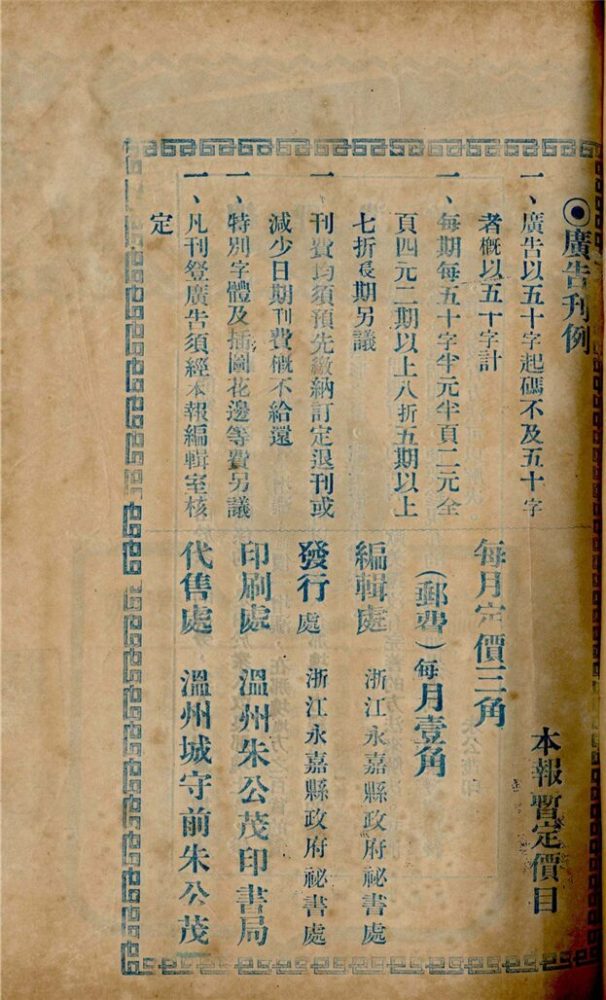 ◉廣告刊例
一、廣告以五十字起碼不及五十字
者概以五十字計
一、每期每五十字半元半頁二元全
頁四元二期以上八折五期以上
七折長期另議
一、刊費均須預先繳納訂定退刊或
減少日期刊費概不給還
一、特別字體及插圖花邊等費另議
一、凡刊登廣告須經本報編輯室核
定
本報暫定價目
每月定價三角
（郵費）每月壹角
編輯處 浙江永嘉縣政府祕書處
發行處 浙江永嘉縣政府祕書處
印刷處 溫州朱公茂印書局
代售處 溫州城守前朱公茂